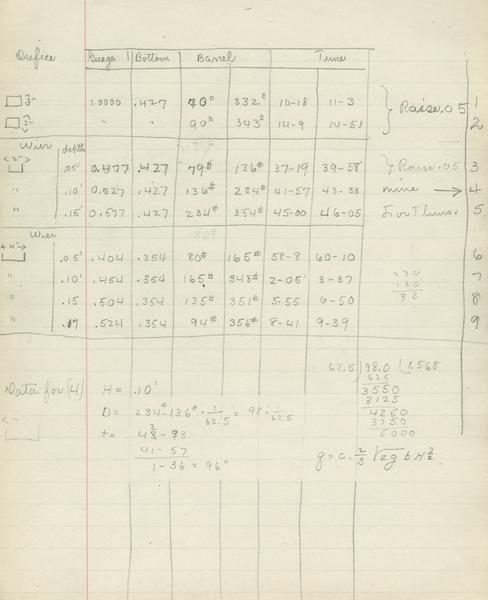 Orifice Guage Bottom Barrel Time
2" 1.0000 .427 70# 332# 10-18 11-3 Raise .05 1
2" " " 90# 343# 14-9 14-51 2
Wier depth
<2"> .05' 0.477 .427 79# 136# 37-19 39-58 Raise .05 3
" .10' 0.527 .427 136# 234# 41-57 43-33 mine → 4
" .15' 0.577 .427 234# 354# 45-00 46-05 For Thurs. 5
Wier
<4"> .05' .404 .354 80# 165# 58-8 60-10 6
" .10' .454 .354 165# 348# 2-05 3-37 7
" .15 .504 .354 135# 351# 5-55 6-50 8
" .17 .524 .354 94# 356# 8-41 9-39 9
234
136
98
Data for (4) H = .10'
D = 234# - 136# · 1/62.5 = 98 · 1/62.5
t = 43-33
41-57
1-36 = 96"
62.5 ) 98.0 ( 1.568
625
3550
3125
4250
3750
5000
q = c · 2/3 √2g b H 3/2